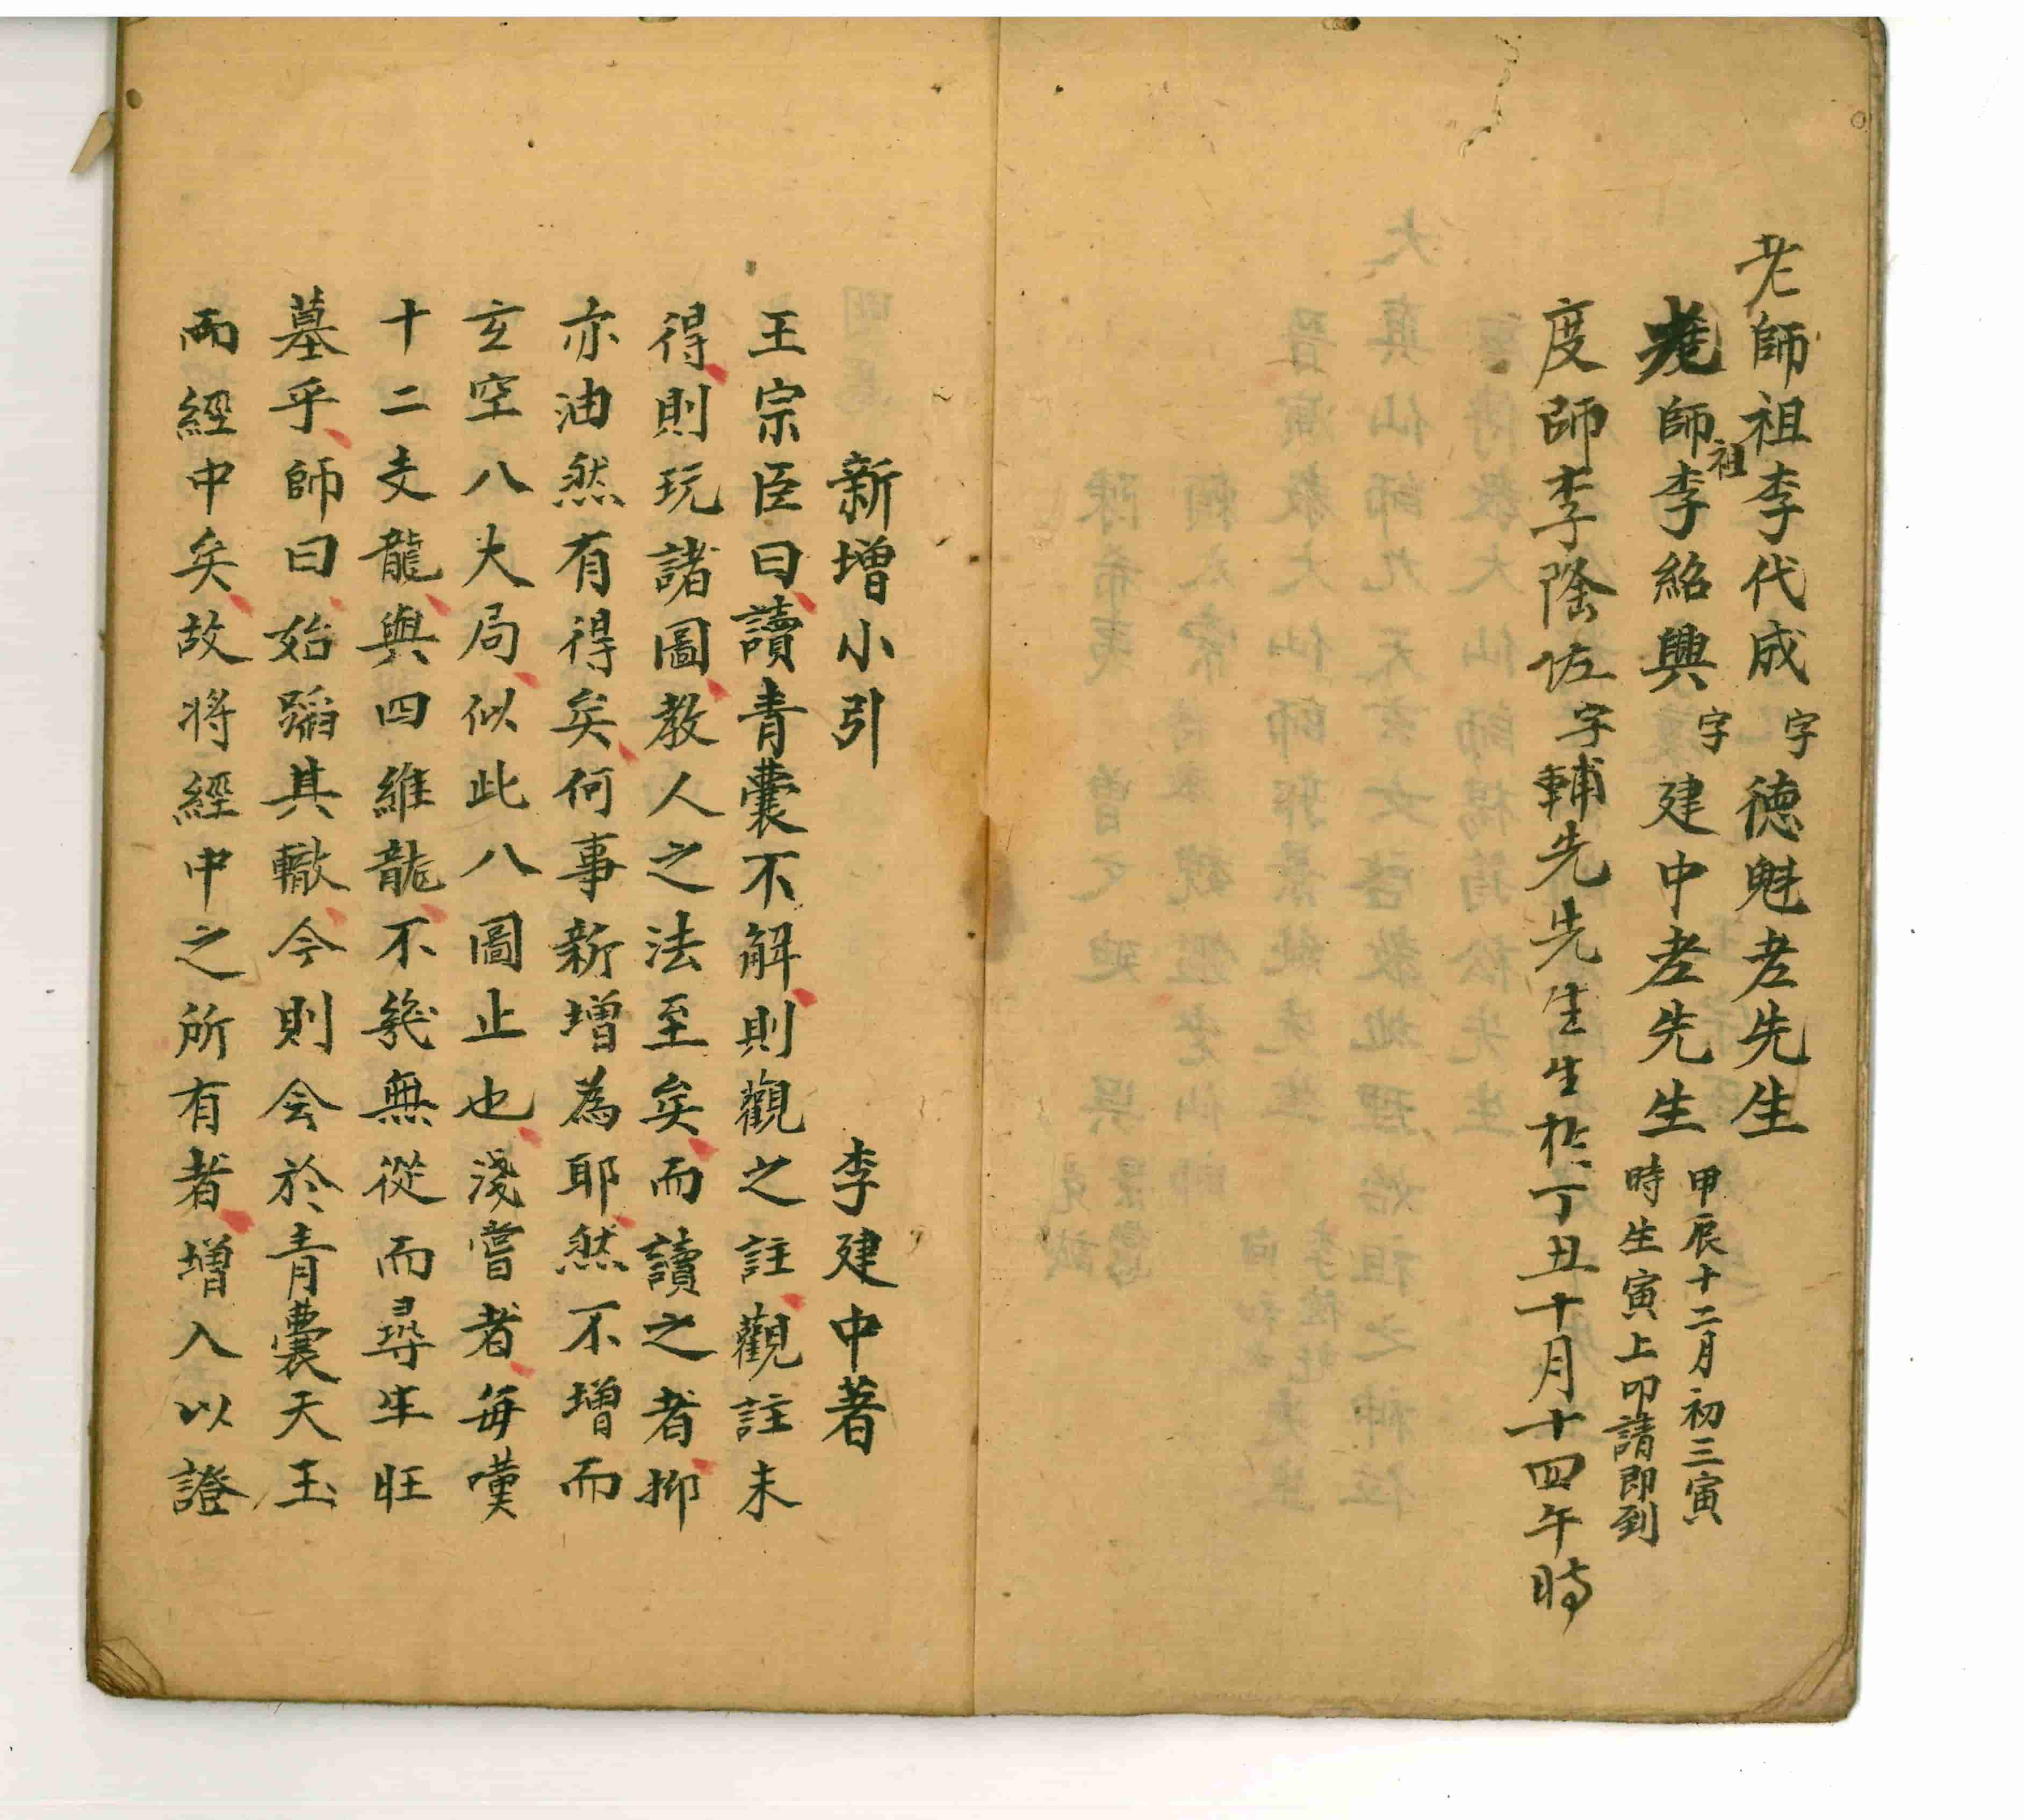 老師祖李代成字德魁老先生
師祖李紹興字建中老先生
甲辰十二月初三寅
時生寅上叩請即到
度師李陰佐字輔先先生生於丁丑十月十四午時
新增小引　李建中著
王宗臣曰讀青囊不解則觀之註觀註未
得則玩諸圖教人之法至矣而讀之者抑
亦油然有得矣何事新增為耶然不增而
玄空八大局似此八圖止也淺嘗者每嘆
十二支龍與四維龍不幾無從而尋生旺
墓乎師曰始蹈其轍今則会於青囊天玉
而經中矣故將經中之所有者增入以證